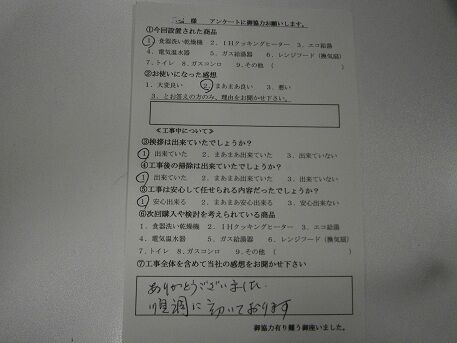 様 アンケートに御協力お願いします。
①今回設置された商品
1．食器洗い乾燥機 2．IHクッキングヒーター 3．エコ給湯
4．電気温水器 5．ガス給湯器 6．レンジフード（換気扇）
7．トイレ 8．ガスコンロ 9．その他（ ）
②お使いになった感想
1．大変良い 2．まあまあ良い 3．悪い
3．とお答えの方のみ、理由をお聞かせ下さい。
≪工事中について≫
③挨拶は出来ていたでしょうか？
1．出来ていた 2．まあまあ出来ていた 3．出来ていない
④工事後の掃除は出来ていたでしょうか？
1．出来ていた 2．まあまあ出来ていた 3．出来ていない
⑤工事は安心して任せられる内容だったでしょうか？
1．安心出来る 2．まあまあ安心出来る 3．安心出来ない
⑥次回購入や検討を考えられている商品
1．食器洗い乾燥機 2．IHクッキングヒーター 3．エコ給湯
4．電気温水器 5．ガス給湯器 6．レンジフード（換気扇）
7．トイレ 8．ガスコンロ 9．その他（ ）
⑦工事全体を含めて当社の感想をお聞かせ下さい
ありがとうございました。
順調に動いております
御協力有り難う御座いました。